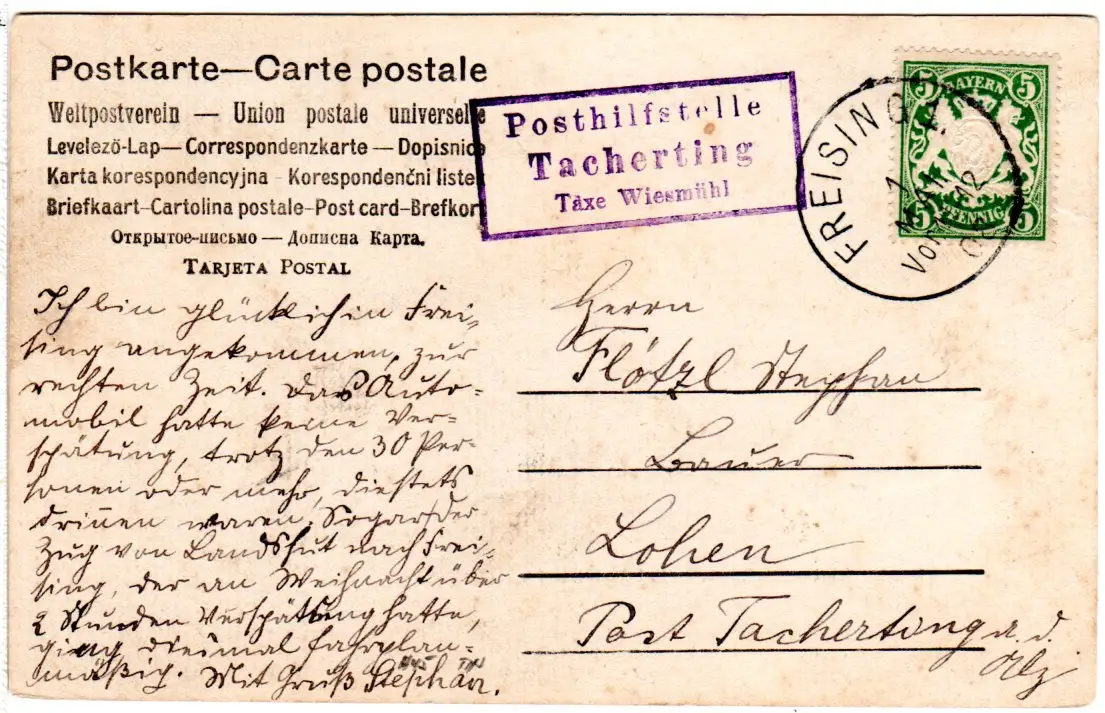 Postkarte—Carte postale
Weltpostverein — Union postale universelle
Levelezö-Lap— Correspondenzkarte — Dopisnice
Karta korespondencyjna - Korespondenčni listek
Briefkaart–Cartolina postale–Post card–Brefkort
Открытое-письмо — Дописна Карта.
TARJETA POSTAL
Posthilfstelle
Tacherting
Taxe Wiesmühl
FREISING
7 MAI
Vor
BAYERN
5 5
5 5
PFENNIG
Ich bin glücklich in Frei-
sing angekommen, zur
rechten Zeit. Das Auto-
mobil hatte keine Ver-
spätung, trotz den 30 Per-
sonen oder mehr, die stets
drinnen waren. Sogar der
Zug von Landshut nach Frei-
sing, der an Weihnacht über
2 Stunden Verspätung hatte,
ging diesmal fahrplan-
mäßig. Mit Gruß Stephan.
Herrn
Flötzl Stephan
Bauer
Lohen
Post Tacherting a. d.
Alz